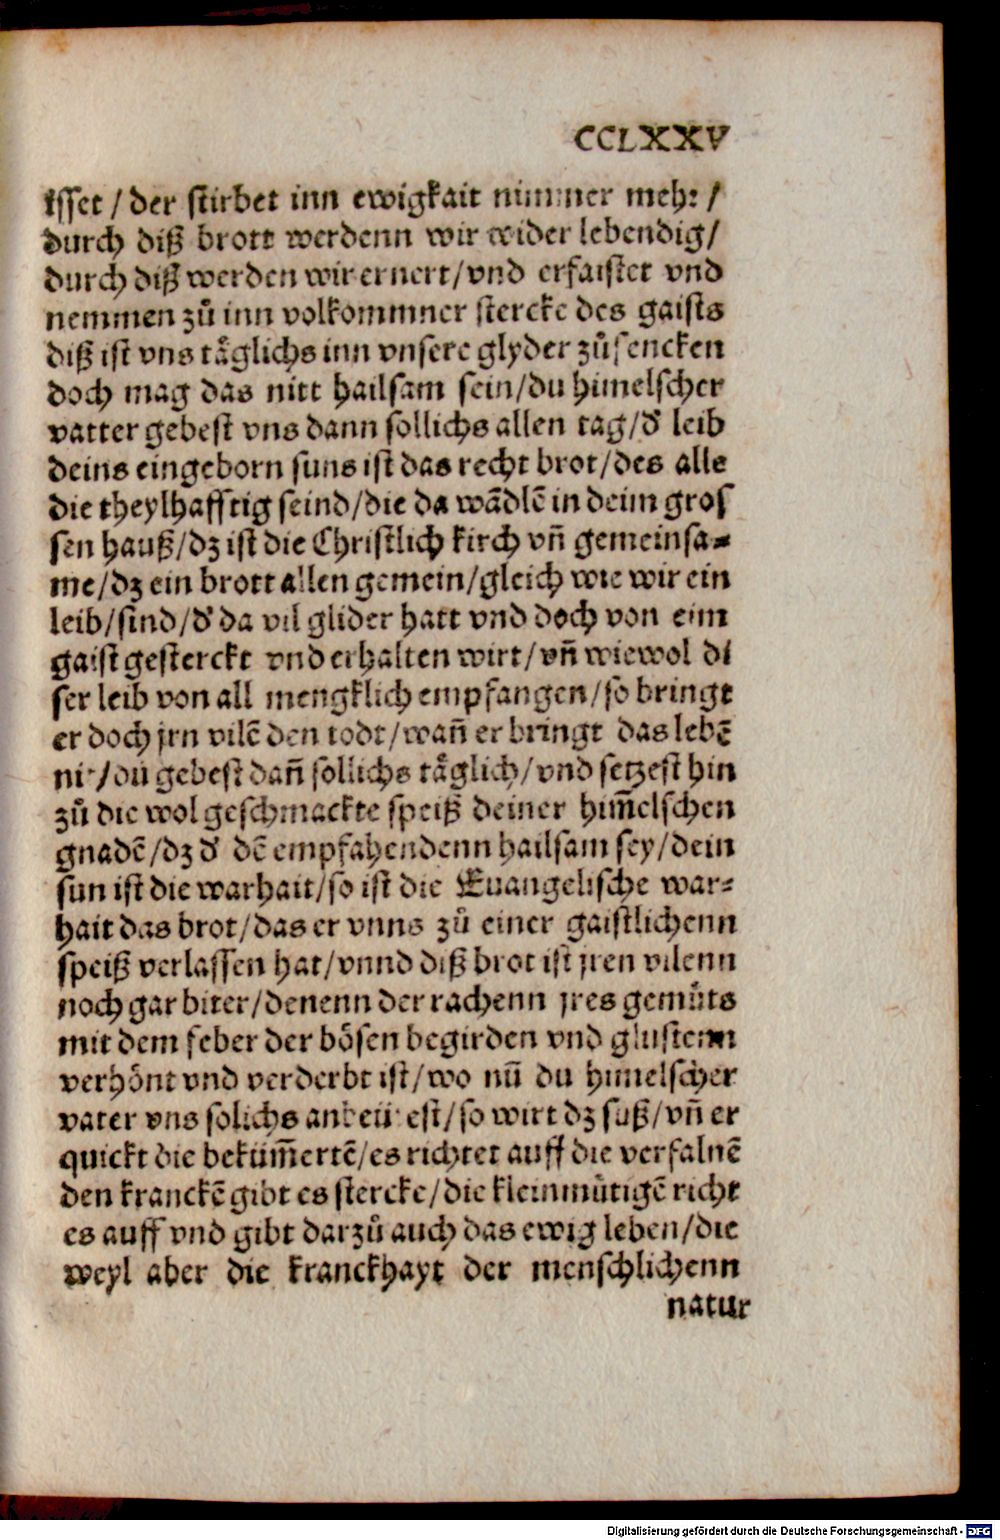 CCLXXV
isset / der stirbet inn ewigkait nimmer mehr /
durch diß brott werdenn wir wider lebendig/
durch diß werden wir ernert/vnd erfaistet vnd
nemmen zů inn volkommner stercke des gaists
diß ist vns tåglichs inn vnsere glyder zůsencken
doch mag das nitt hailsam sein/du himelscher
vatter gebest vns dann sollichs allen tag/d' leib
deins eingeborn suns ist das recht brot/des alle
die theylhafftig seind/die da wādlē in deim gros
sen hauß/dz ist die Christlich kirch vn̄ gemeinsa⸗
me/dz ein brott allen gemein/gleich wie wir ein
leib/sind/d' da vil glider hatt vnd doch von eim
gaist gesterckt vnd erhalten wirt/vn̄ wiewol di
ser leib von all mengklich empfangen/so bringt
er doch jrn vilē den todt/wan̄ er bringt das lebē
nit/du gebest dan̄ sollichs tåglich/vnd setzest hin
zů die wol geschmackte speiß deiner him̄elschen
gnadē/dz d' dē empfahendenn hailsam sey/dein
sun ist die warhait/so ist die Euangelische war⸗
hait das brot/das er vnns zů einer gaistlichenn
speiß verlassen hat/vnnd diß brot ist jren vilenn
noch gar biter/denenn der rachenn jres gemůts
mit dem feber der bösen begirden vnd glustenn
verhönt vnd verderbt ist/wo nū du himelscher
vater vns solichs anbeütest/so wirt dz suß/vn̄ er
quickt die beküm̄ertē/es richtet auff die verfalnē
den kranckē gibt es stercke/die kleinmůtigē richt
es auff vnd gibt darzů auch das ewig leben/die
weyl aber die kranckhayt der menschlichenn
natur
Digitalisierung gefördert durch die Deutsche Forschungsgemeinschaft - DFG